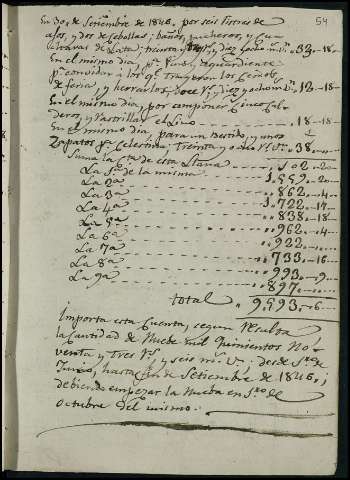 54
En 30,, de Setiem.e de 1846, por seis tiestas de
ajos, y dos de sebollas; baños, pucheros, y cu
charas de Lata; treinta y tres r.s, diez y ocho m. 33,,-18-
En el mismo dia, p.r Vino, y aguardiente
p.a convidar à los q.e trageron los Leños
de feria, y hornarlos, doce r.s, diez y ocho m. 12,,-18-
En el mismo dia, por componer cinco Cal
deros, y rastrillar el Lino 18,,-18-
En el mismo dia, para un bestido, y unos
Zapatos p.a Celestina; Treinta y ocho r.s V.n 38,,
Suma la C.ta de esta Llana 102,,-20-
La S.a de la misma 1.559,,-20-
La 2ª 862,,-4-
La 3ª 1.722,,-14-
La 4ª 838,,-18-
La 5ª 962,,-4-
La 6ª 922,,
La 7ª 733,,-16-
La 8ª 993,,-9-
La 9ª 897,,
Total 9,593,,-6-
Importa esta Cuenta, segun resulta
la Cantidad de Nuebe mil Quinientos No
venta y Tres r.s y seis m.s V.n desde
Junio, hasta fin de Setiembre de 1846,;
debiendo empezar la Nueba en
Octubre del mismo.